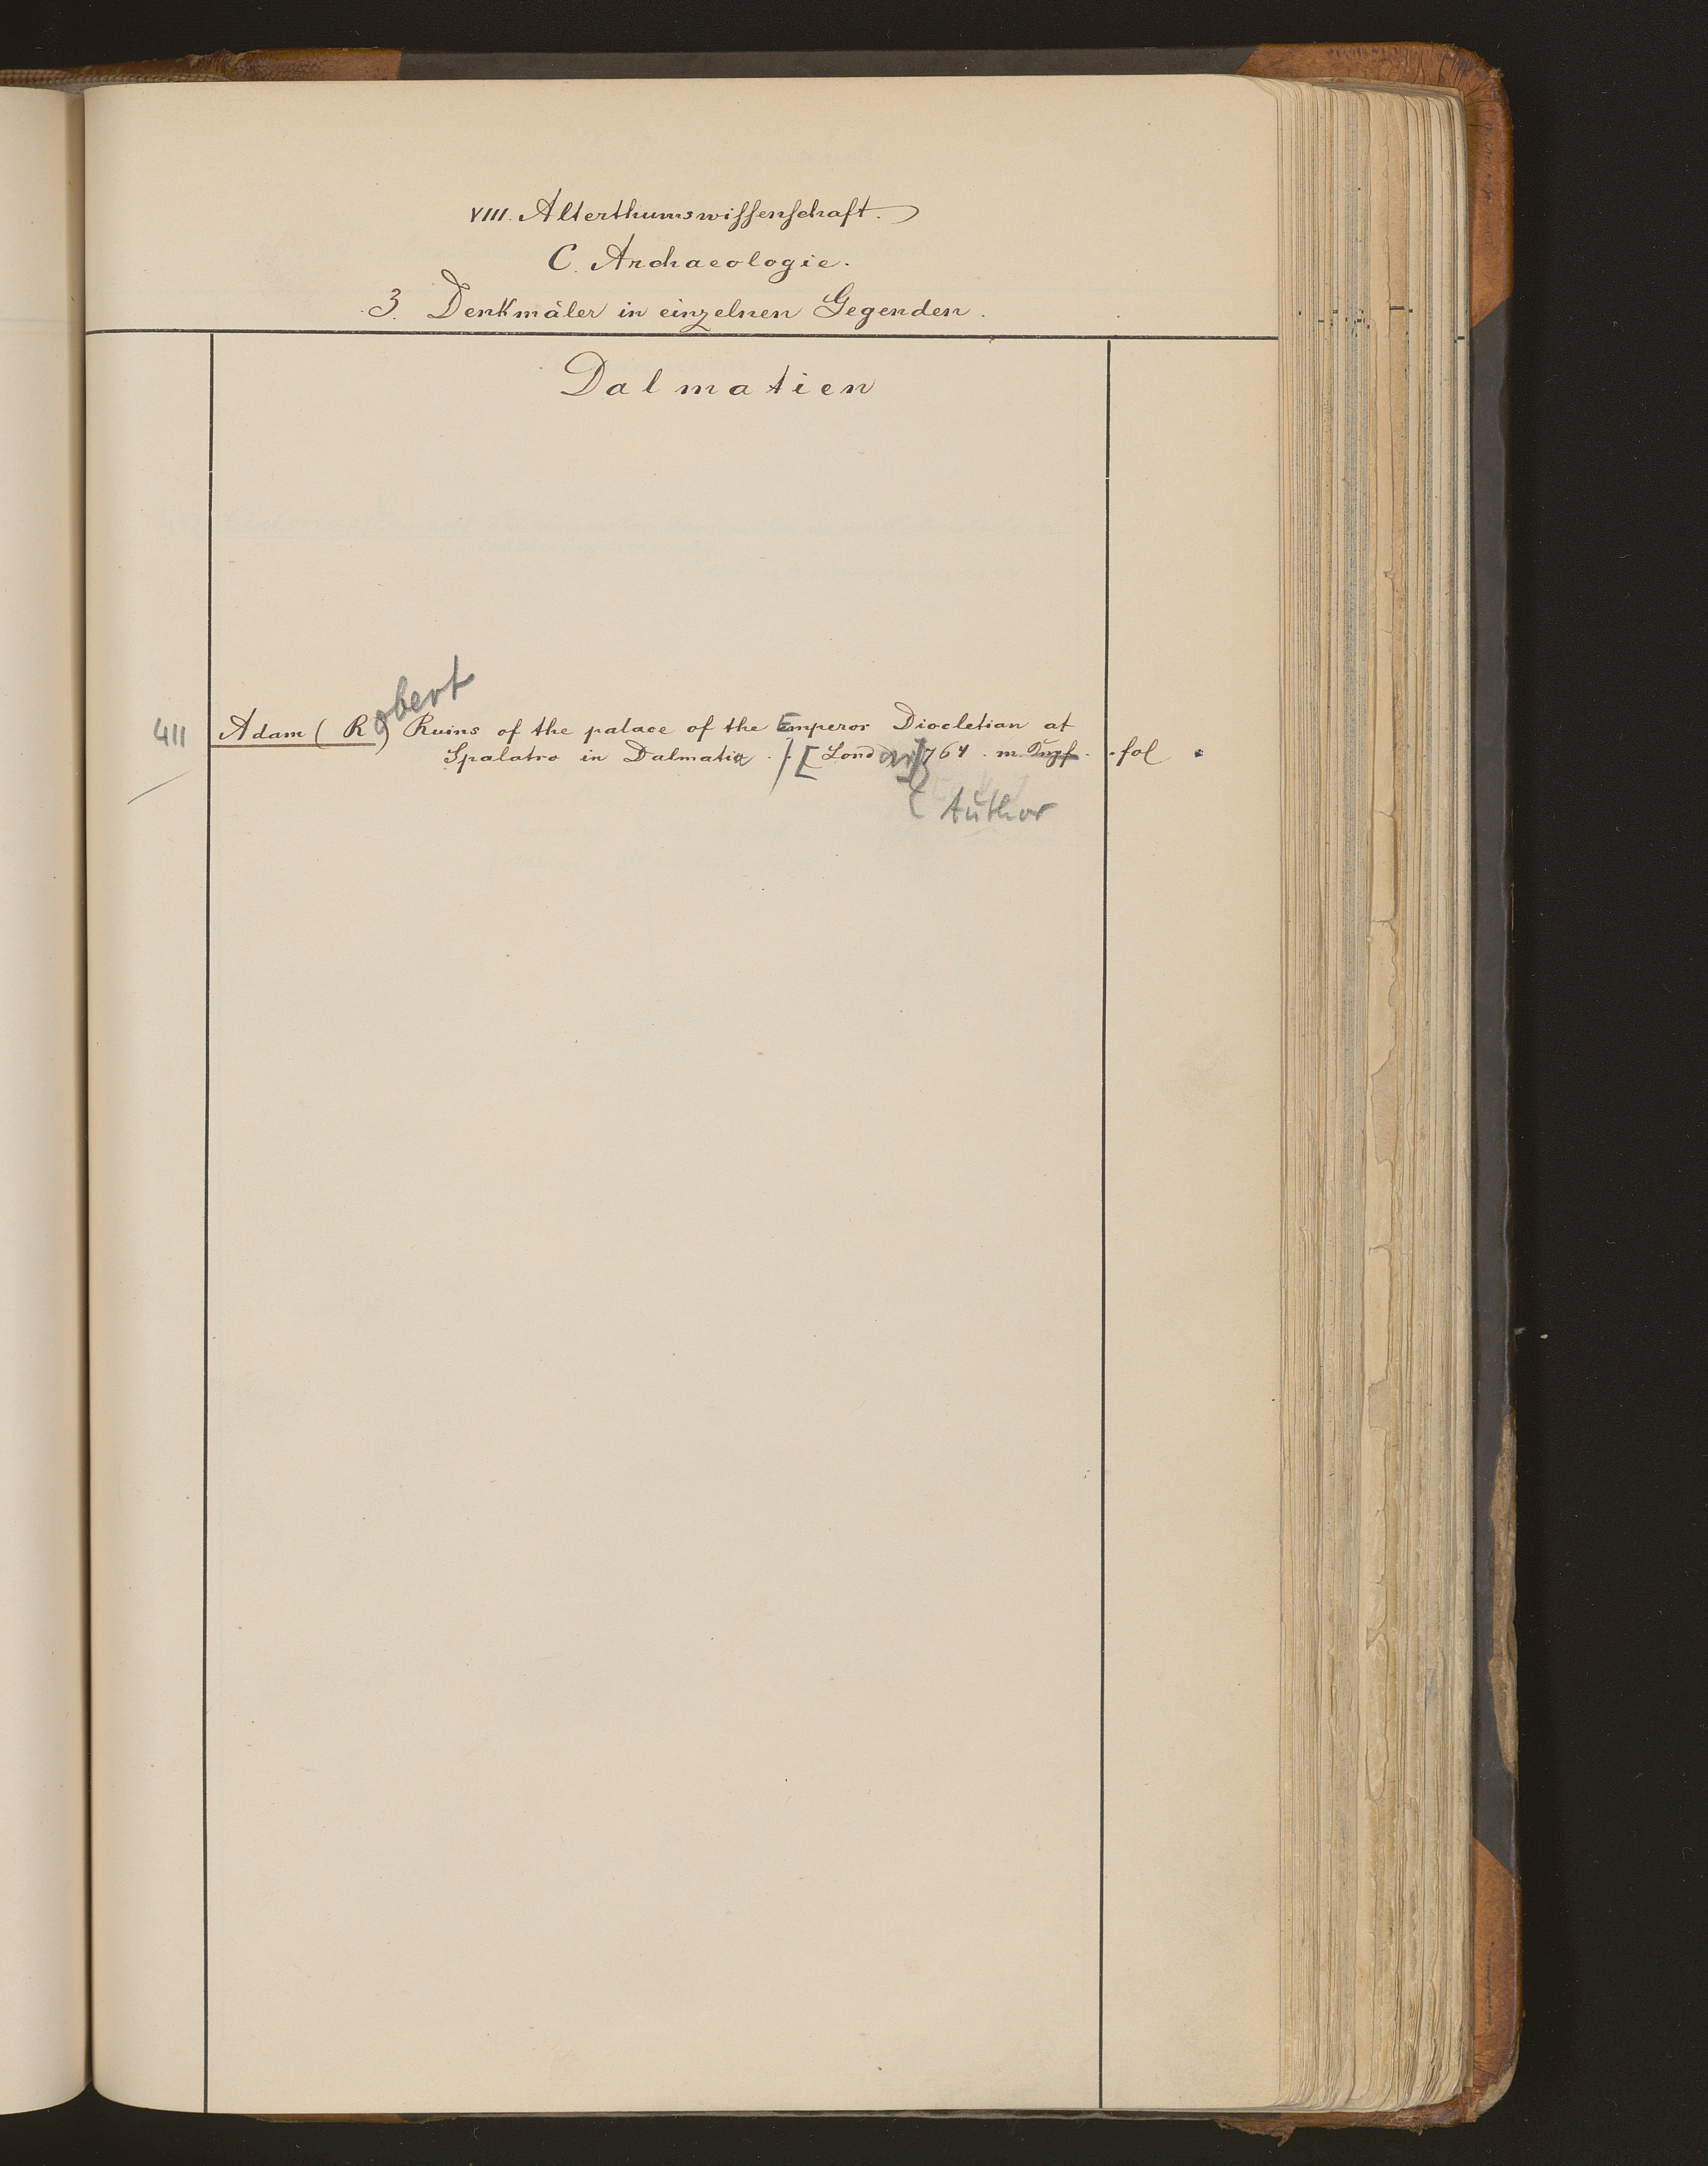 VIII. Alterthumswissenschaft.
C. Archaeologie.
3. Denkmäler in einzelnen Gegenden.
Dalmatien
411 Adam (Robert) Ruins of the palace of the Emperor Diocletian at
Spalatro in Dalmatia. /. [London] 1764. m. Kupf. fol.
Author